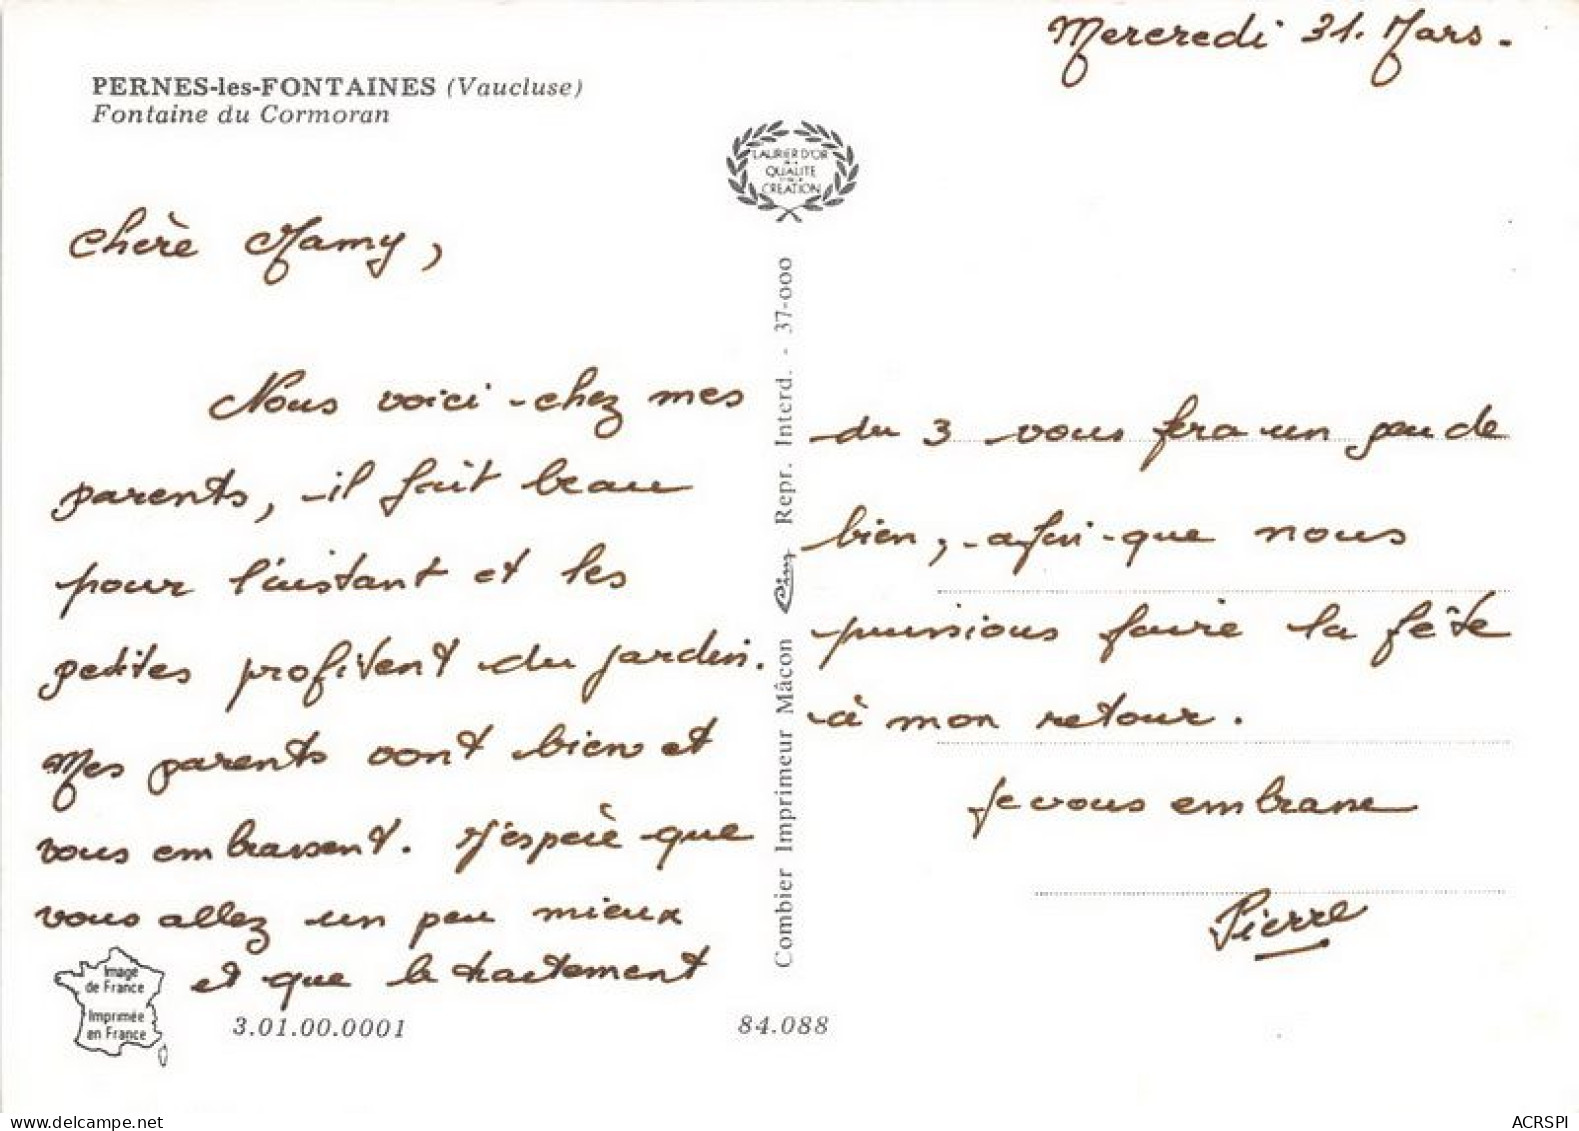 Mercredi 31. Mars.
PERNES-les-FONTAINES (Vaucluse)
Fontaine du Cormoran
LAURIER D'OR
QUALITE
CREATION
Chère Mamy,
Nous voici chez mes
parents, il fait beau
pour l'instant et les
petites profitent du jardin.
Mes parents vont bien et
vous embrassent. J'espère que
vous allez un peu mieux
et que le traitement
Image
de France
Imprimée
en France
3.01.00.0001
84.088
Combier Imprimeur Mâcon Cim Repr. Interd. - 37-000
du 3 vous fera un peu de
bien, afin que nous
puissions faire la fête
à mon retour.
Je vous embrasse
Pierre
www.delcampe.net
ACRSPI